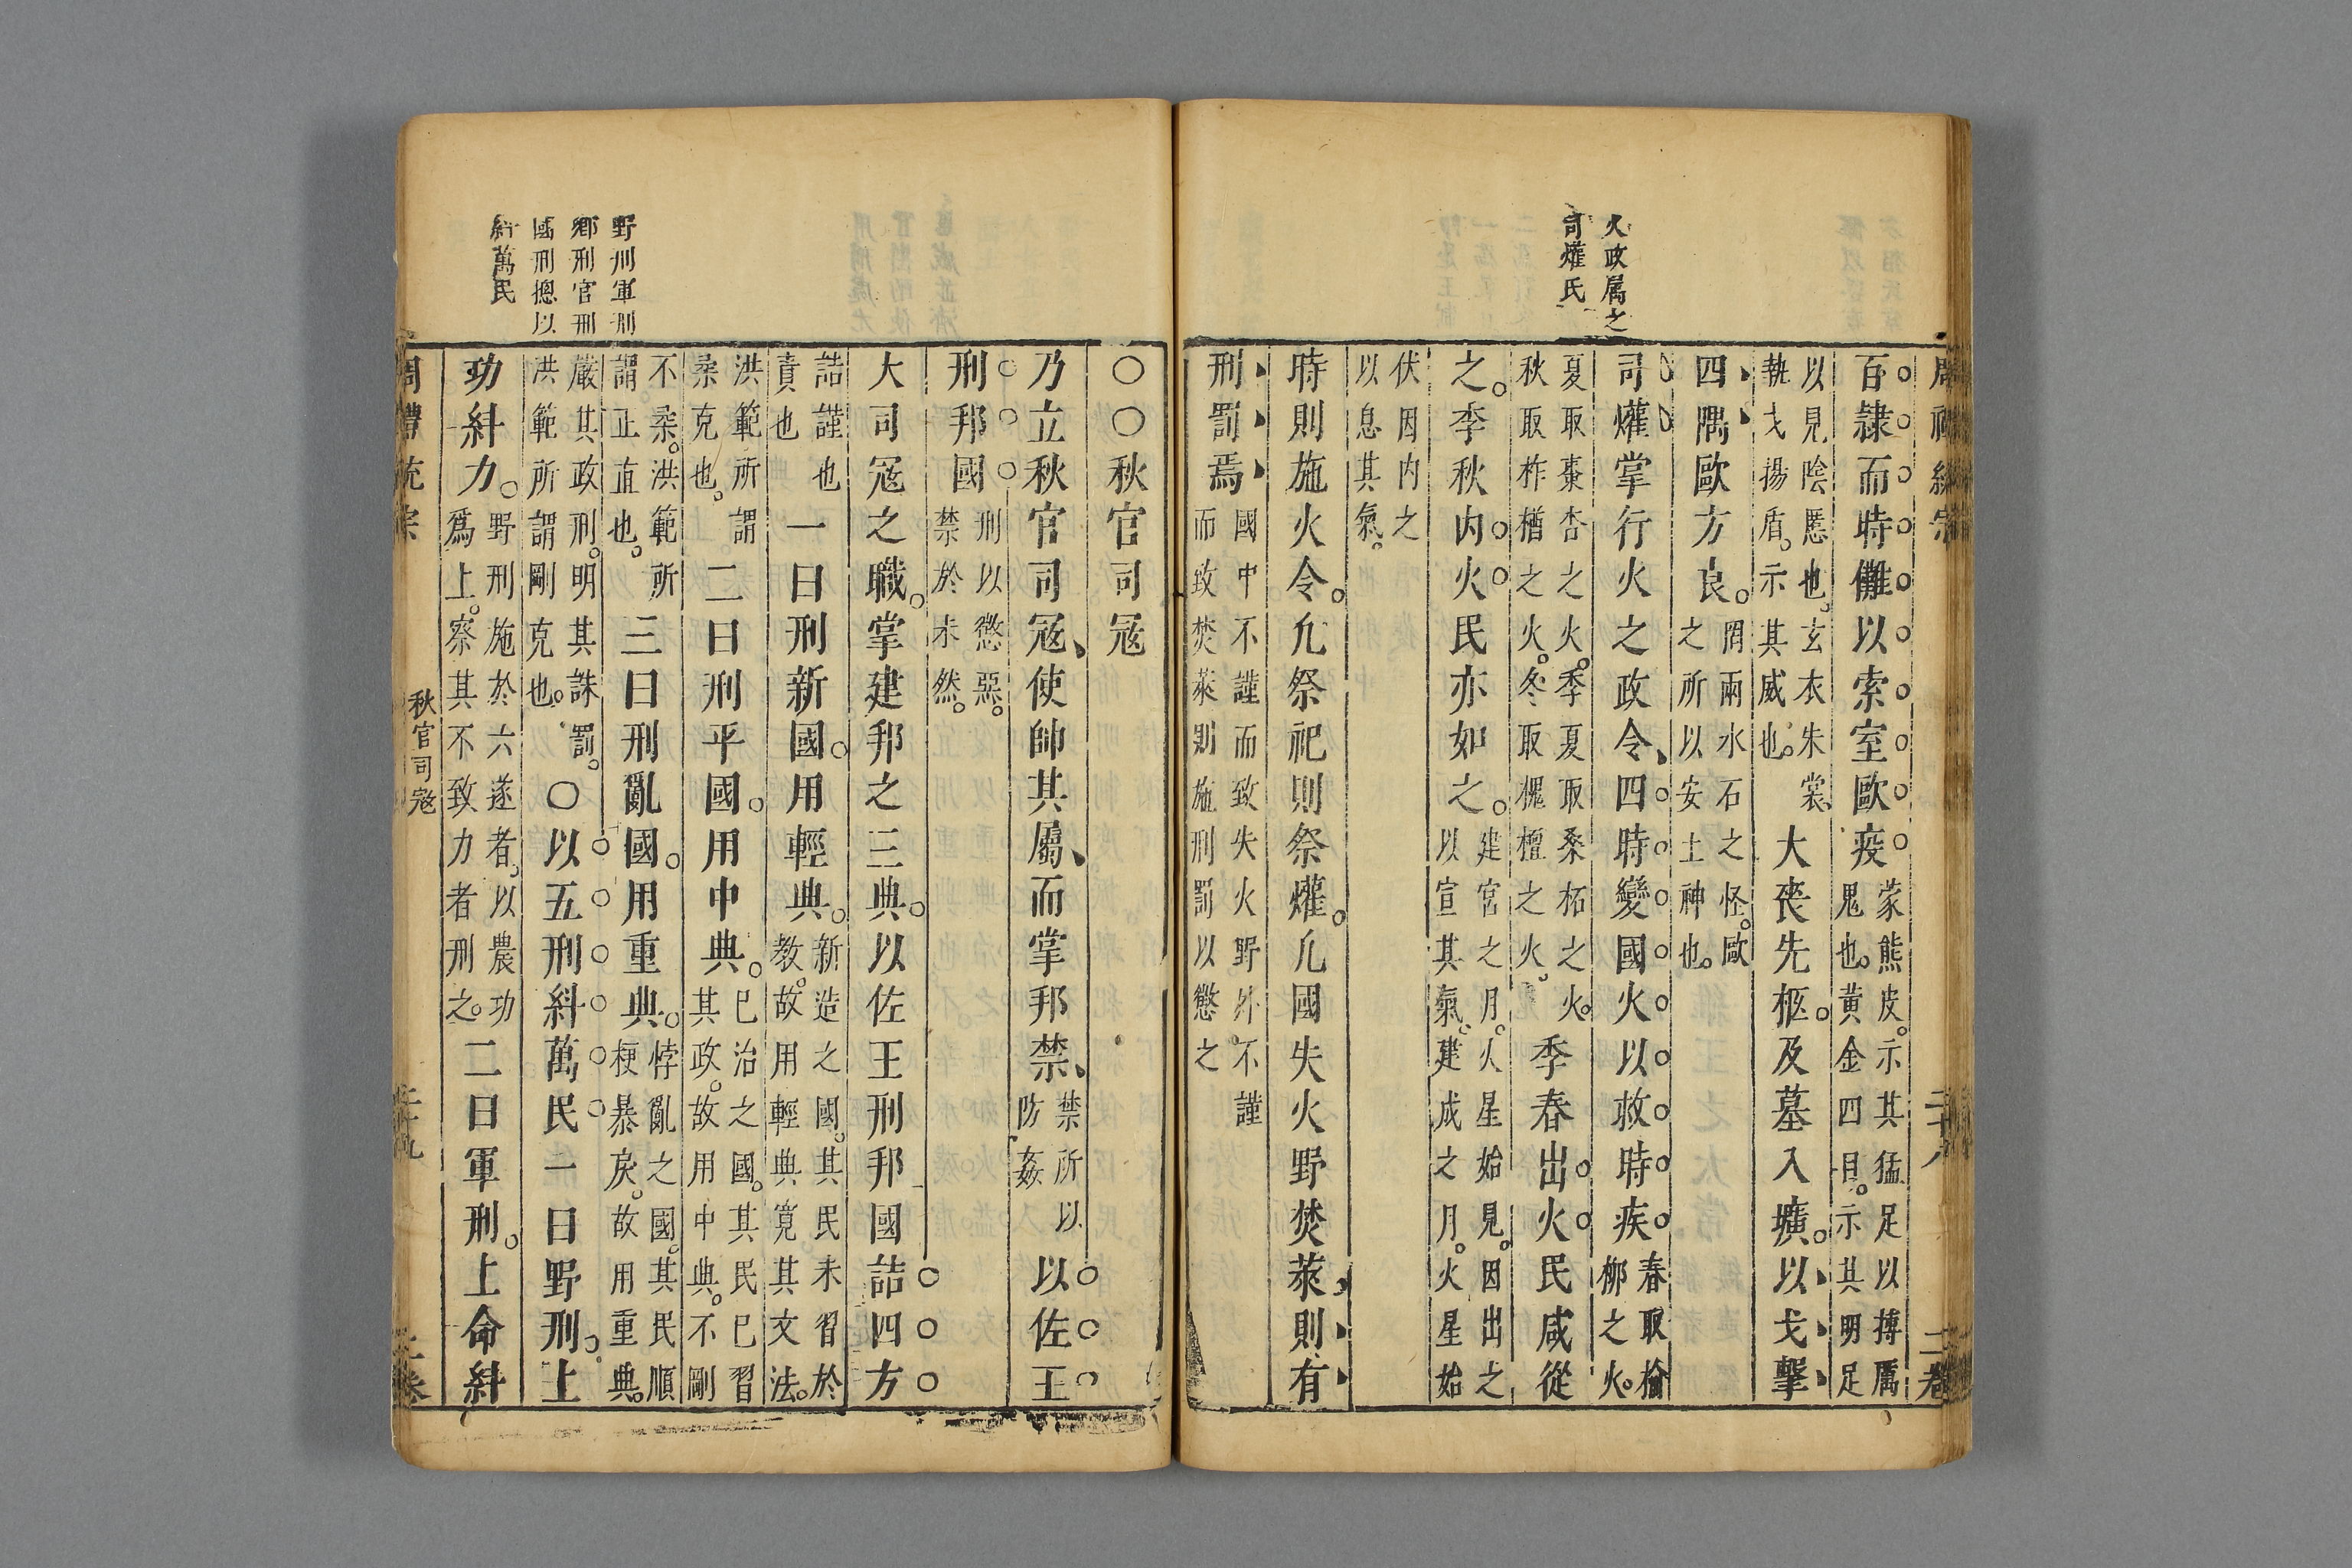 火政属之
司爟氏
百隷而時儺以索室歐疫
蒙熊皮示其猛足以搏厲
鬼也黄金四目示其明足
以見陰慝也玄衣朱裳
執戈揚盾示其威也
大喪先柩及墓入壙以戈擊
四隅歐方良
罔兩水石之怪歐
之所以安土神也
司爟掌行火之政令四時變國火以救時疾
春取榆
柳之火
夏取棗杏之火季夏取桑柘之火
秋取柞楢之火冬取槐檀之火
季春出火民咸從
之季秋内火民亦如之
建宮之月火星始見因出之
以宣其氣建戌之月火星始
伏因内之
以息其氣
時則施火令凢祭祀則祭爟凢國失火野焚萊則有
刑罰焉
國中不謹而致失火野外不謹
而致焚萊則施刑罰以懲之
野刑軍刑
鄉刑官刑
國刑摠以
紏萬民
〇〇秋官司冦
乃立秋官司冦使帥其屬而掌邦禁
禁所以
防姦
以佐王
刑邦國
刑以懲惡
禁於未然
大司冦之職掌建邦之三典以佐王刑邦國詰四方
詰謹也
責也
一曰刑新國用輕典
新造之國其民未習於
教故用輕典寛其文法
洪範所謂
柔克也
二曰刑平國用中典
已治之國其民已習
其政故用中典不剛
不柔洪範所
謂正直也
三曰刑亂國用重典
悖亂之國其民順
梗暴戾故用重典
嚴其政刑明其誅罰
洪範所謂剛克也
〇以五刑糾萬民一曰野刑上
功糾力
野刑施於六遂者以農功
爲上察其不致力者刑之
二曰軍刑上命糾
周禮統宗
秋官司冦
二卷